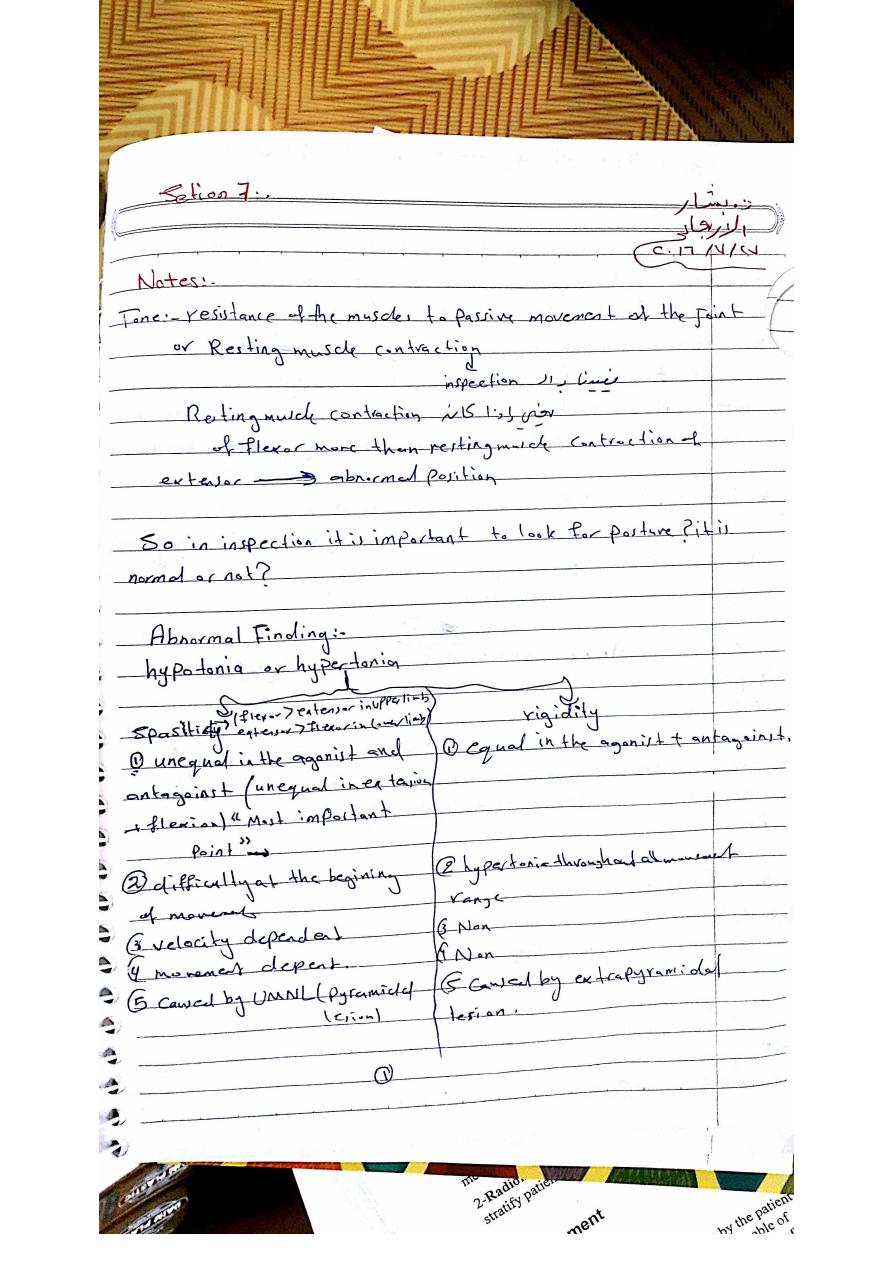 Setion 7:.
د. بشار
الارجاني
٢٠١٦/٧/٢٧
Notes:-
Tone:- resistance of the muscles to passive movement of the joint
or Resting muscle contraction
inspection بال
يعني اذا كانت Resting muscle contraction
of flexor more than resting muscle contraction of
extensor → abnormal position
So in inspection it is important to look for posture? it is
normal or not?
Abnormal Finding:-
hypotonia or hypertonia
(flexor > extensor in upper limb)
spasticity extensor > flexor in lower limb)
① unequal in the agonist and
antagoinst (unequal in extension
+ flexion) "Most important
Point" →
② difficully at the begining
of movement
③ velocity dependent
④ movement depent.
⑤ Caused by UMNL (pyramidal
lesion)
rigidity
① equal in the agonist + antagoinst.
② hypertonic throughout all movement
range
③ Non
④ Non
⑤ Caused by extrapyramidal
lesion.
①
2-Radio
stratify patie
ment
by the patient
able of